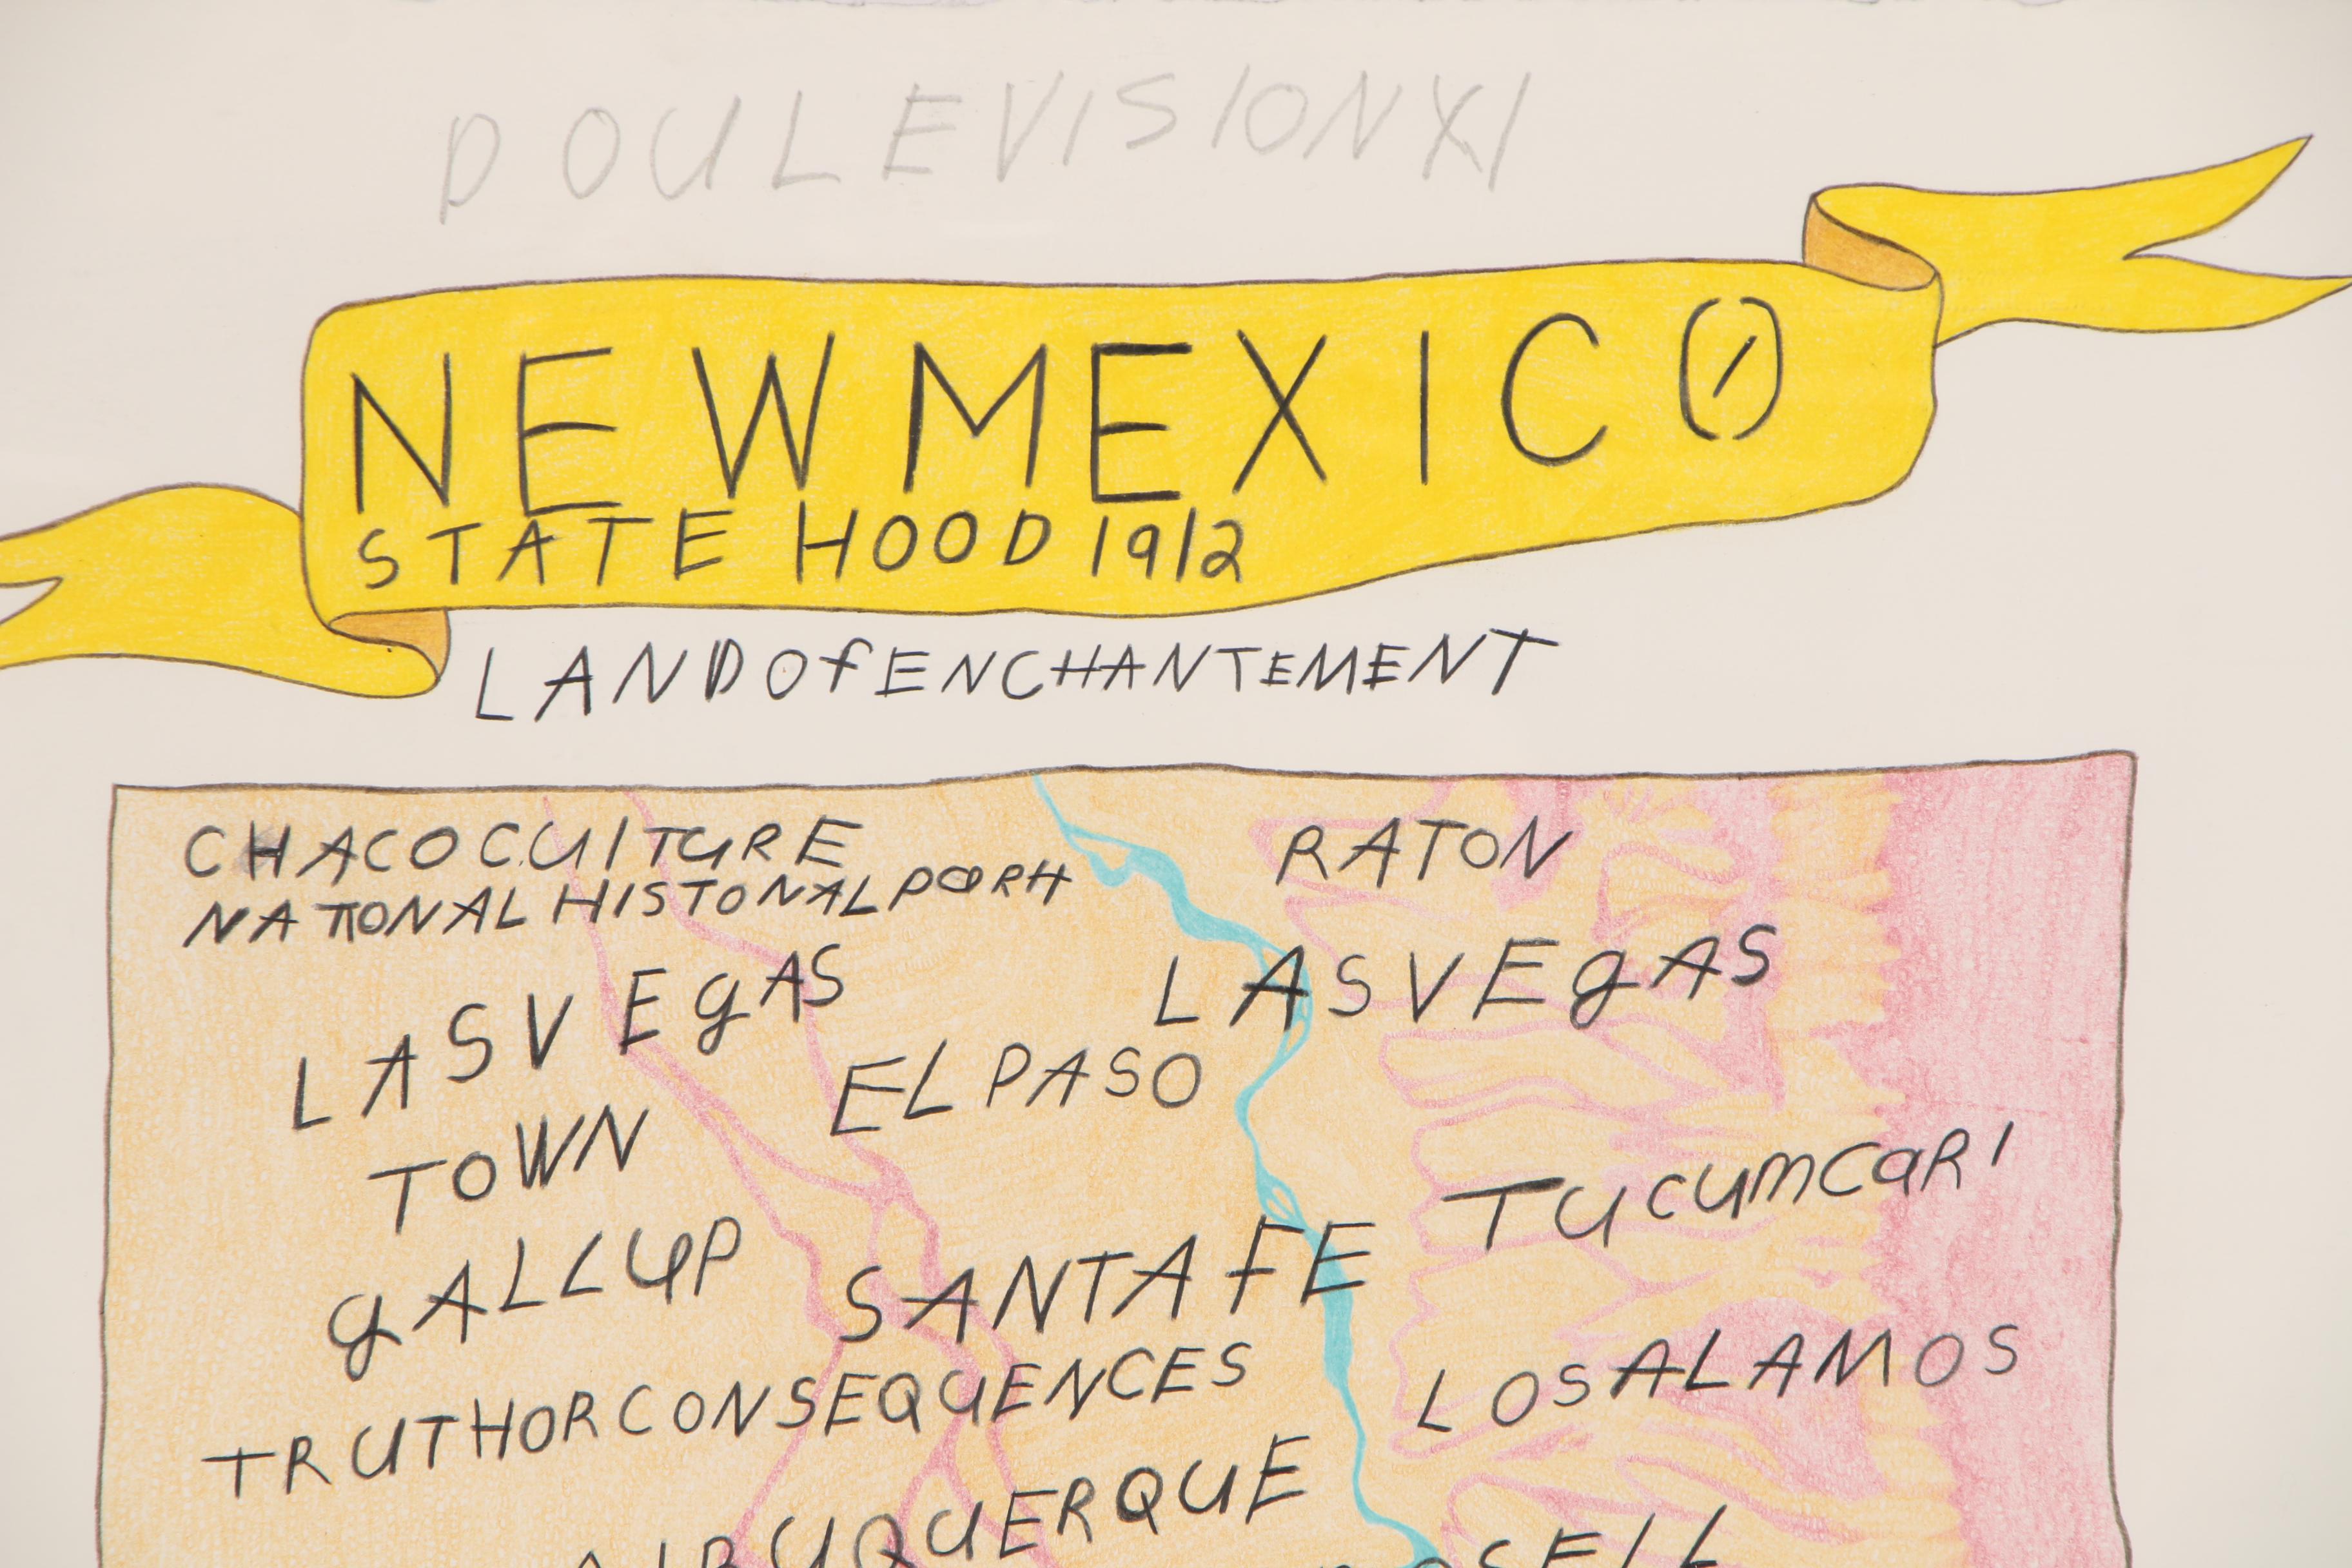 DOULEVISIONXI
NEWMEXICO
STATE HOOD 1912
LANDOfENCHANTEMENT
CHACOCUlTURE
NATIONALHISTONALPORH
RATON
LASVEgAS
LASVEgAS
ELPASO
TOWN
TUCUMCaRI
gALLUP
SANTAFE
TRUTHORCONSEQUENCES
LOSALAMOS
AlBUQUERQUE
OSELL